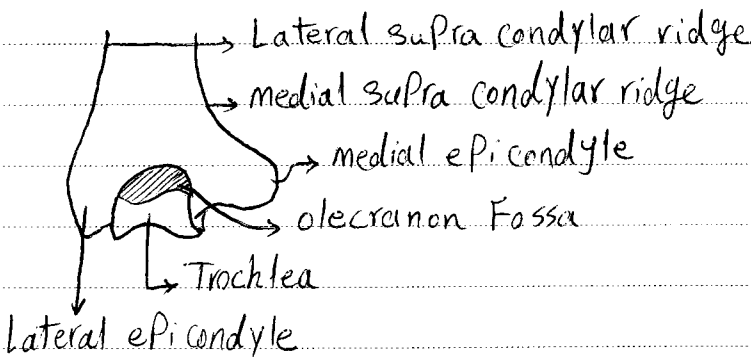 Lateral supra condylar ridge
medial supra condylar ridge
medial epicondyle
olecranon Fossa
Trochlea
Lateral epicondyle